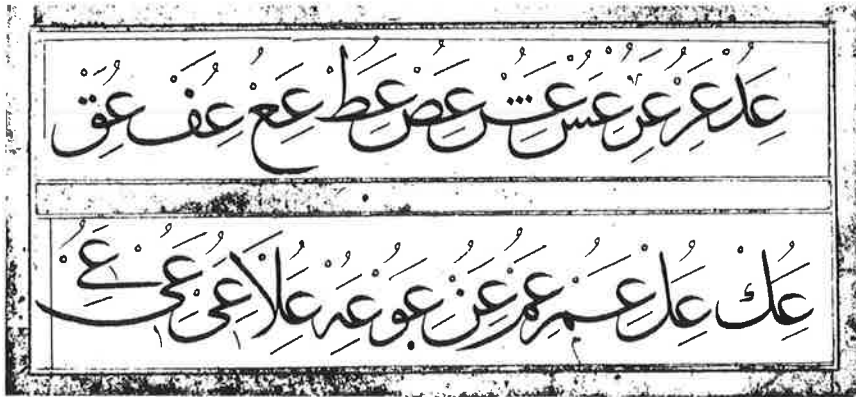 عد عر عر عس عش عص عط عع عف عق
عك عل عم عم عن عو عه علا عى عى